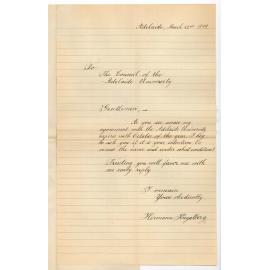 Adelaide, March 22nd
To
The Council of the
Adelaide University
Gentlemen,
As you are aware my
agreement with the Adelaide University
expires with October of the year. I beg
to ask you if it is your intention to
renew the same and under what conditions?
Trusting you will favor me with
an early reply
I remain
Yours obediently
Hermann